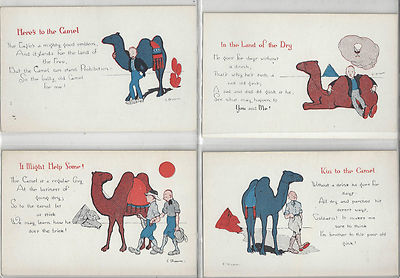 Here's to the Camel
The Eagle's a mighty good emblem,
And it stands for the land of
the Free,
But the Camel can stand Prohibition.
So the bully old Camel
for me!
In the Land of the Dry
He goes for days without
a drink,
That's why he's such a
sad old gink,
A sad and dull old gink is he,
See what may happen to
You and Me!
It Might Help Some!
The Camel is a regular Guy
At the business of
going dry;
So to the camel let
us stick
We may learn how he
does the trick!
Kin to the Camel
Without a drink he goes for
days
All dry and parched his
desert ways,
It makes me
sure to think
I'm brother to this poor old
gink!